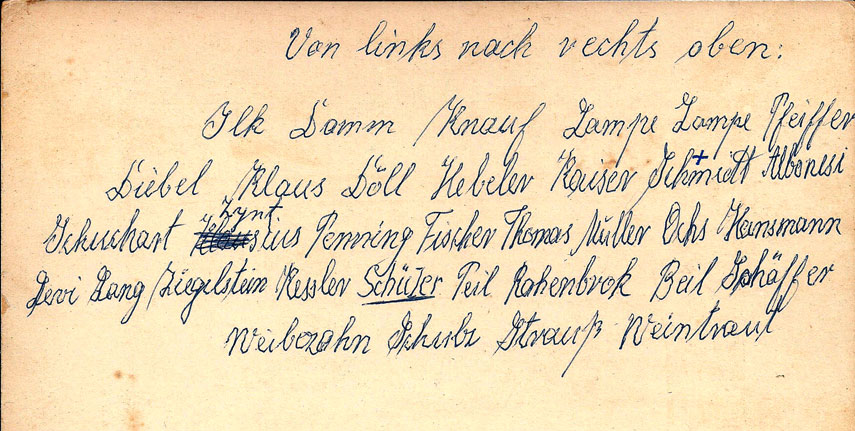 Von links nach rechts oben:
Ilk Damm Knauf Lampe Lampe Pfeiffer
Diebel Klaus Döll Hebeler Kaiser Schmidt Albonesi
Schuchart Zynt Penning Fischer Thomas Müller Ochs Hansmann
Levi Lang Ziegelstein Kessler Schüler Peil Rohenbrok Beil Schäffer
Weibezahn Schubz Strauß Weintraut